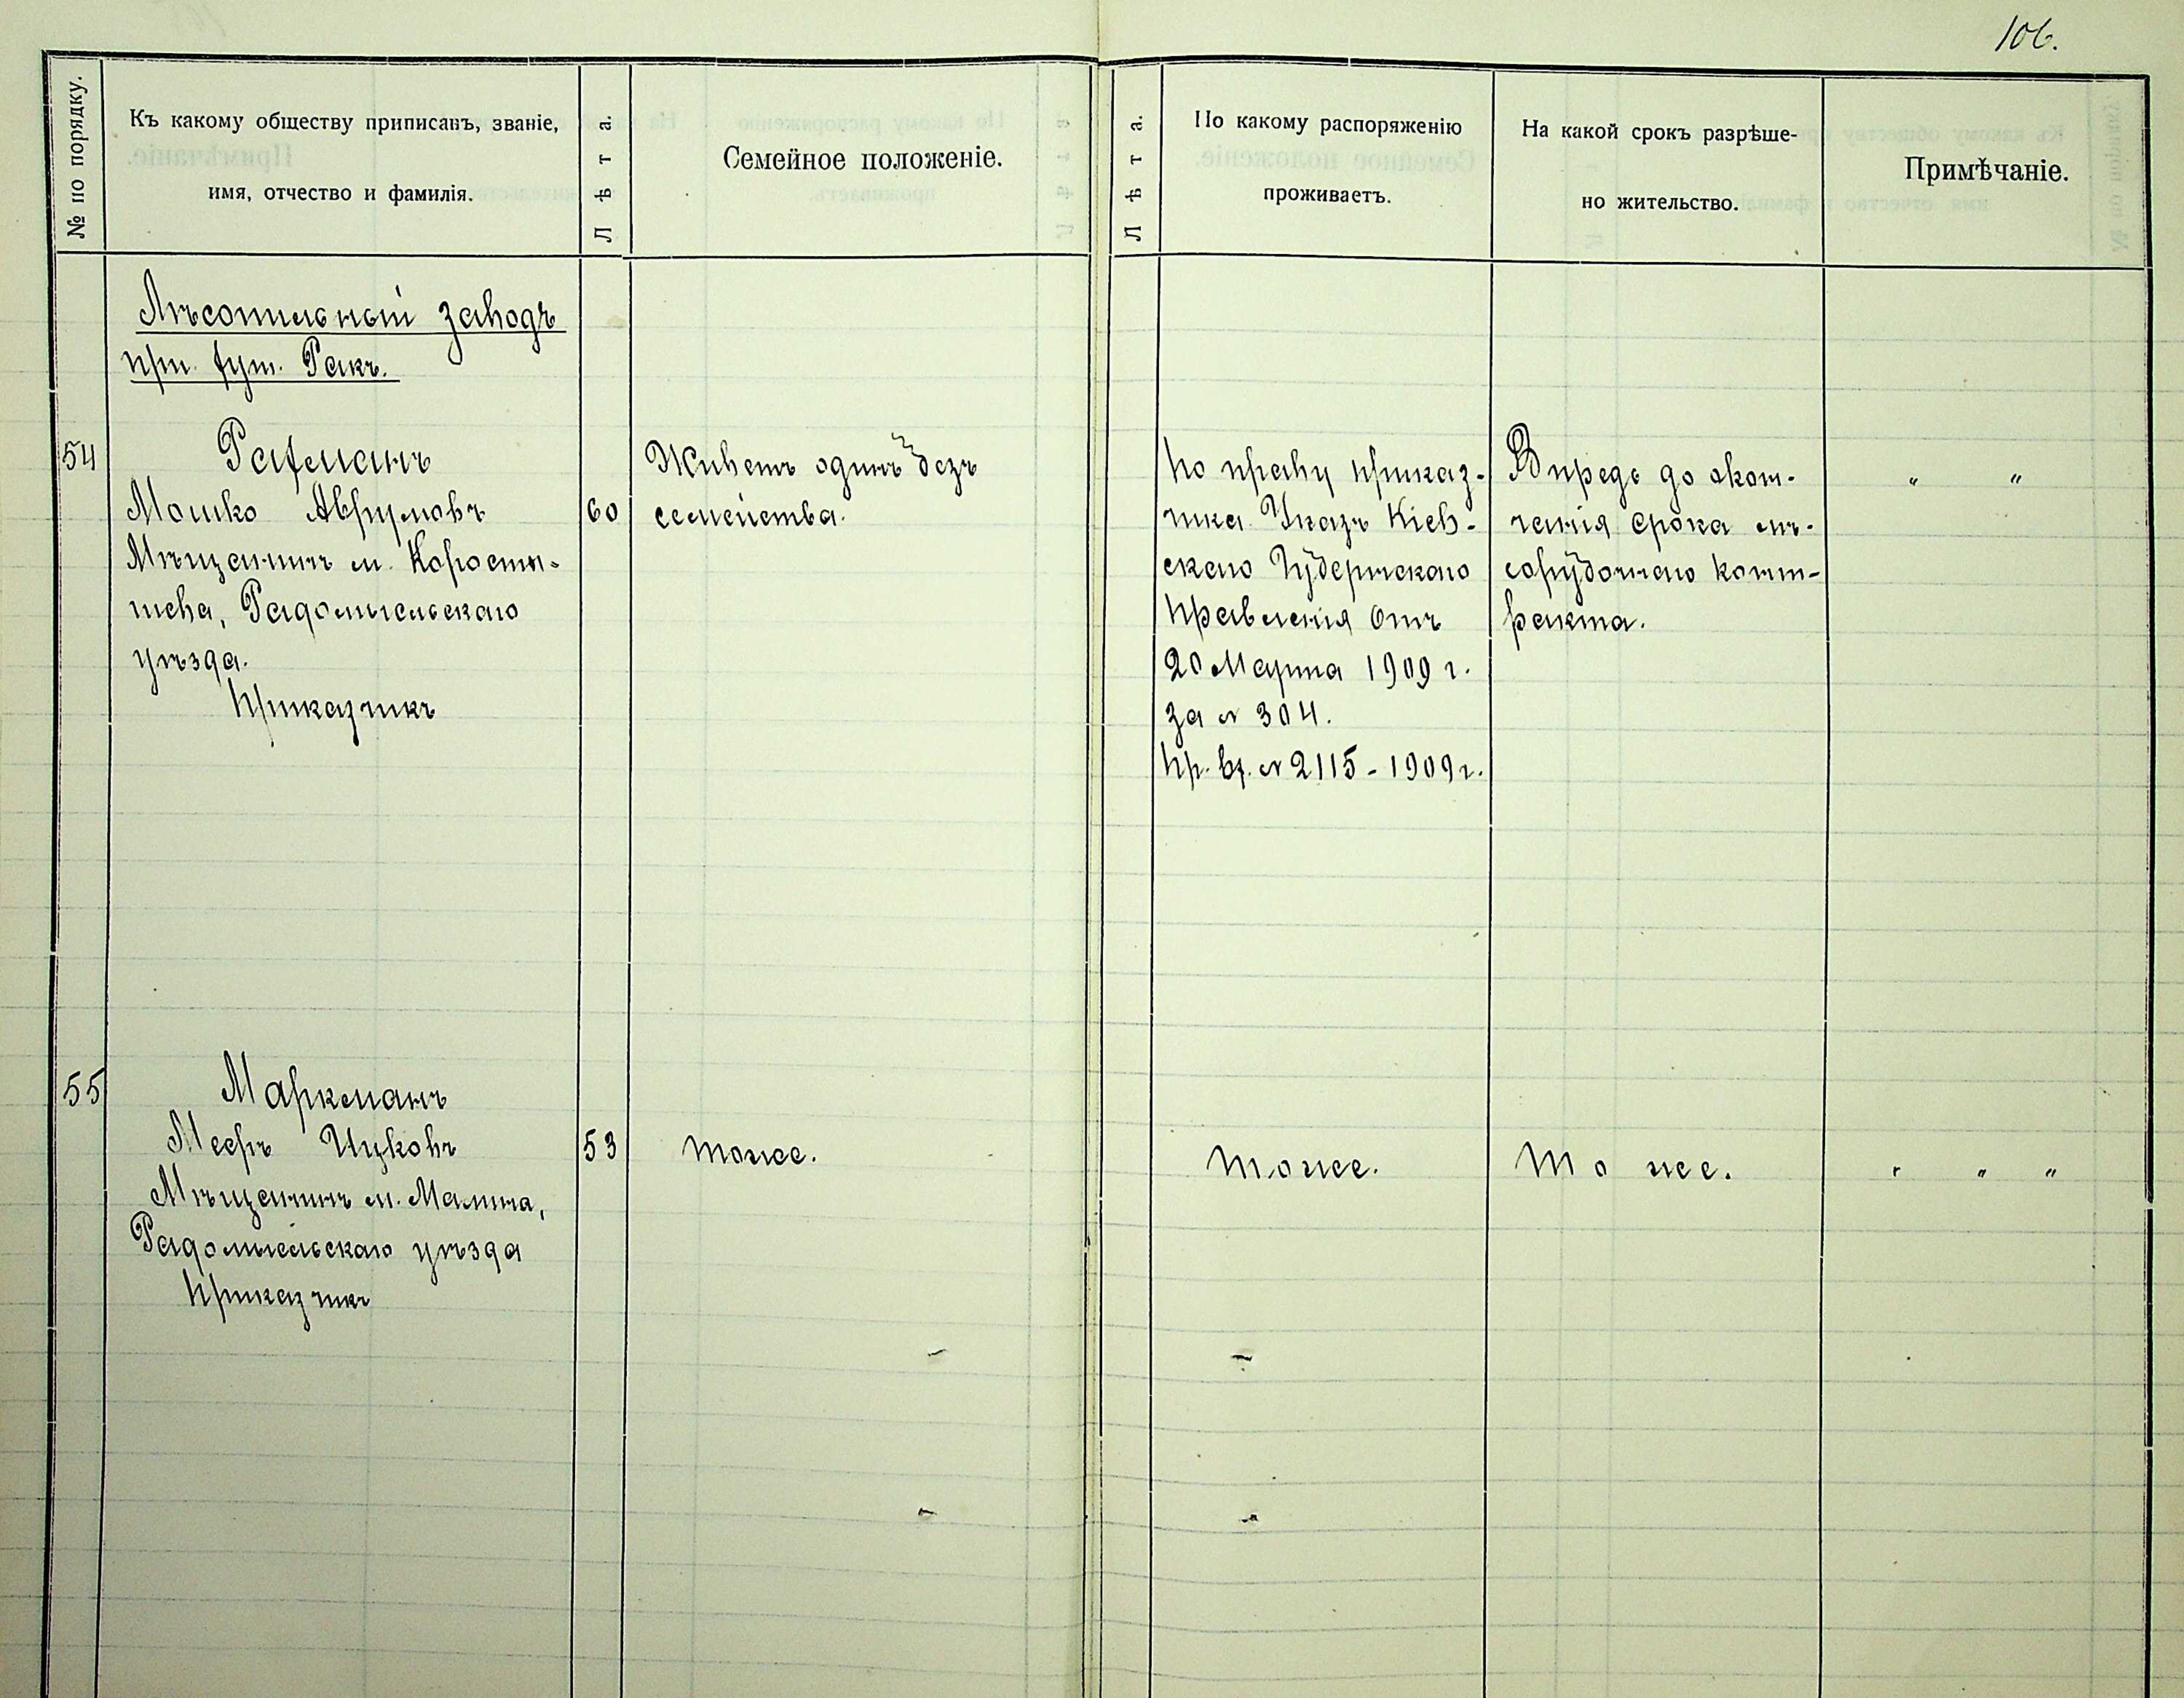 106.
№ по порядку.
Къ какому обществу приписанъ, званіе,
имя, отчество и фамилія.
Лѣта.
Семейное положеніе.
Лѣта.
По какому распоряженію
проживаетъ.
На какой срокъ разрѣше-
но жительство.
Примѣчаніе.
Лѣсопильный заводъ
при хут. Ракъ.
54
Рахманъ
Мошко Аврумовъ
Мѣщанинъ м. Коросты-
шева, Радомысльскаго
уѣзда.
Приказчикъ
60
Живетъ одинъ безъ
семейства.
По праву приказ-
чика. Указъ Кіев-
скаго Губернскаго
Правленія отъ
20 Марта 1909 г.
за № 304.
Пр. вх. № 2115 - 1909 г.
Впредь до окон-
чанія срока лѣ-
сорубочнаго конт-
ракта.
" "
55
Маркманъ
Мееръ Ицковъ
Мѣщанинъ м. Малина,
Радомысльскаго уѣзда
Приказчикъ
53
тоже.
тоже.
то же.
" " "